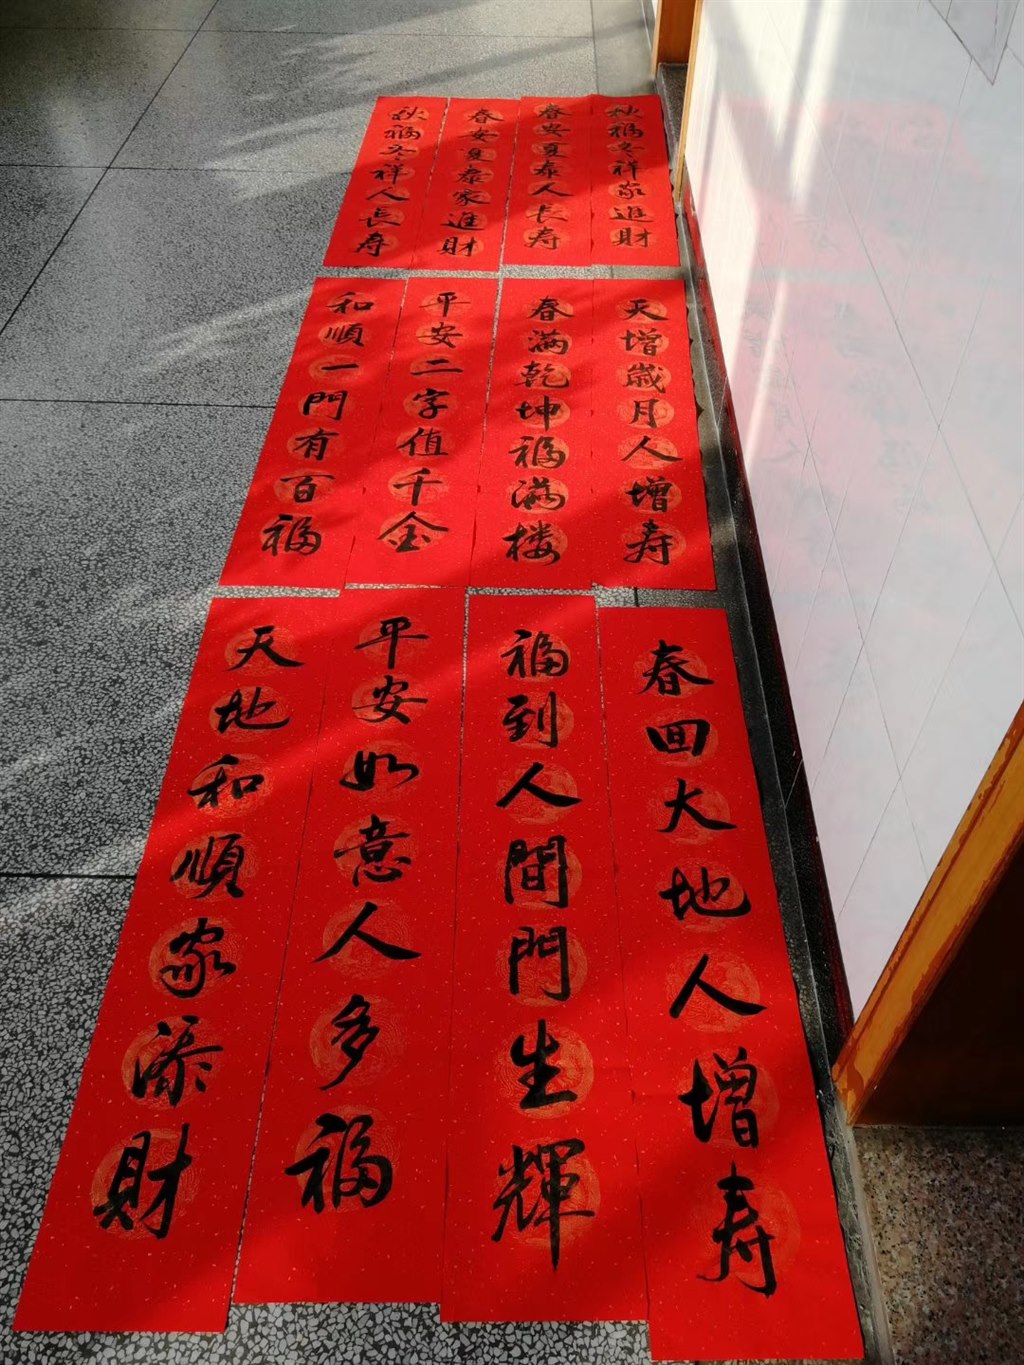 秋福冬祥家進財
春安夏泰人长寿
春安夏泰家進財
秋福冬祥人長寿
天增歲月人增寿
春满乾坤福满楼
平安二字值千金
和順一門有百福
春回大地人增寿
福到人間門生輝
平安如意人多福
天地和順家添財